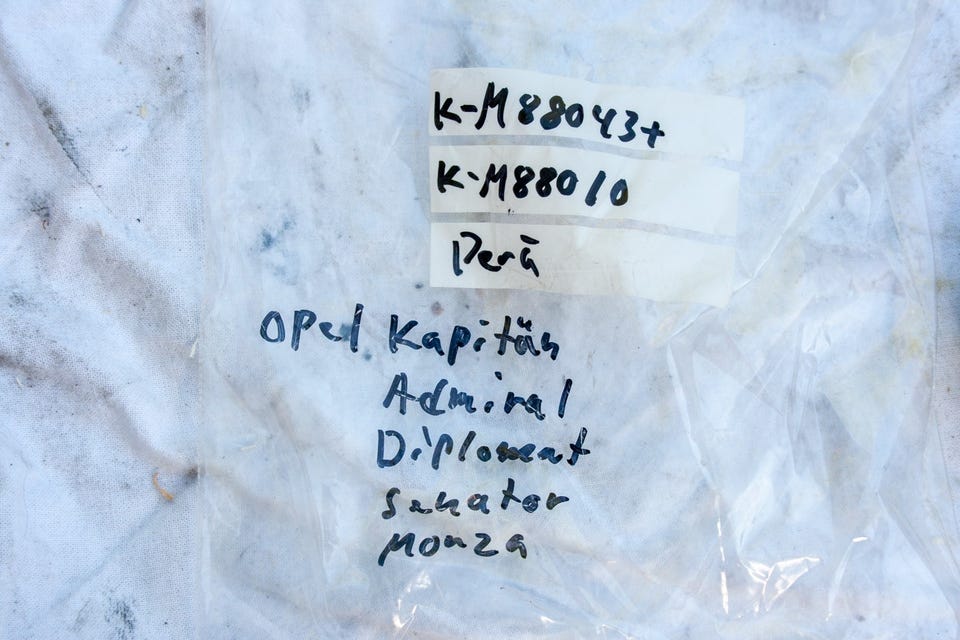 K-M88043+
K-M88010
Perä
Opel Kapitän
Admiral
Diplomat
Senator
Monza